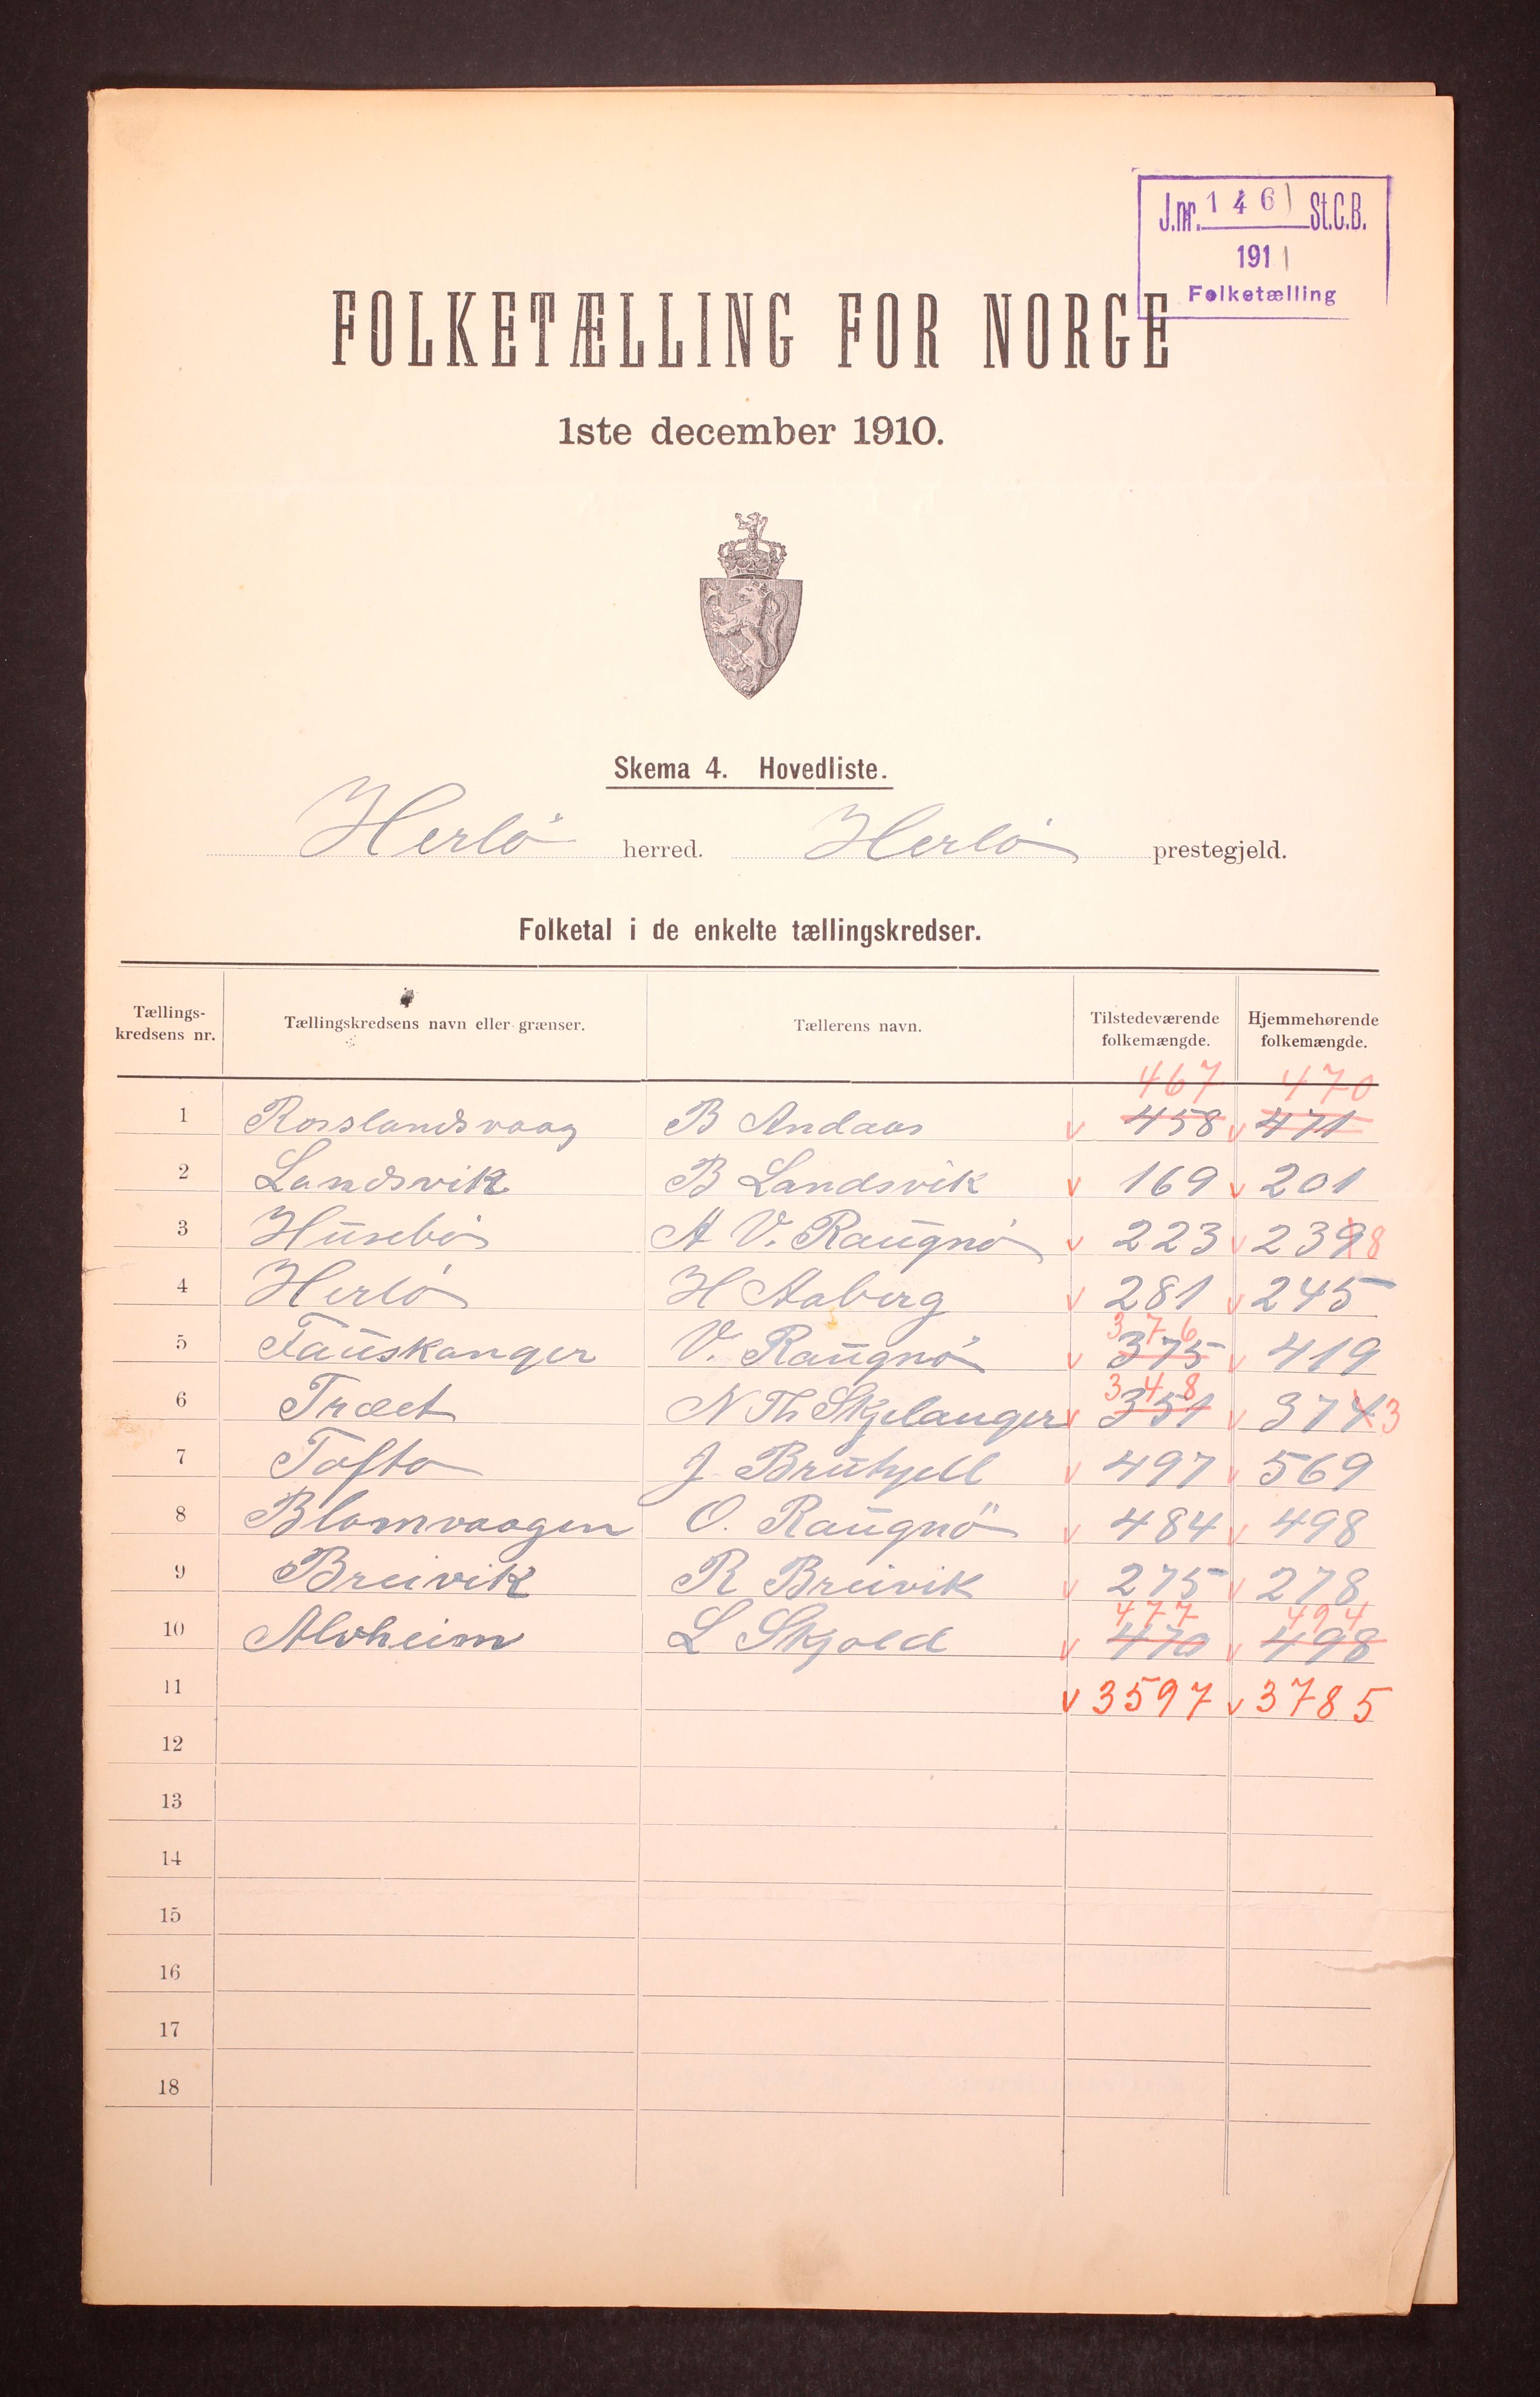 J.nr. 1461 St.C.B.
1911
Folketælling
FOLKETÆLLING FOR NORGE
1ste december 1910.
Skema 4. Hovedliste.
Herlö herred. Herlö prestegjeld.
Folketal i de enkelte tællingskredser.
Tællings-kredsens nr. Tællingskredsens navn eller grænser. Tællerens navn. Tilstedeværende folkemængde. Hjemmehørende folkemængde.
467 470
1 Rosslandsvaag B Andaas v 458 v 471
2 Landsvik B Landsvik v 169 v 201
3 Husebö A V. Raugnö v 223 v 239 8
4 Herlö H Aaberg v 281 v 245
376
5 Fauskanger V. Raugnö v 375 v 419
348
6 Træet N Th Skjelanger v 351 v 374 3
7 Tofto J v 497 v 569
8 Blomvaagen O. Raugnö v 484 v 498
9 Breivik R Breivik v 275 v 278
477 494
10 Alvheim L Skjold v 470 v 498
11 v 3597 v 3785
12
13
14
15
16
17
18